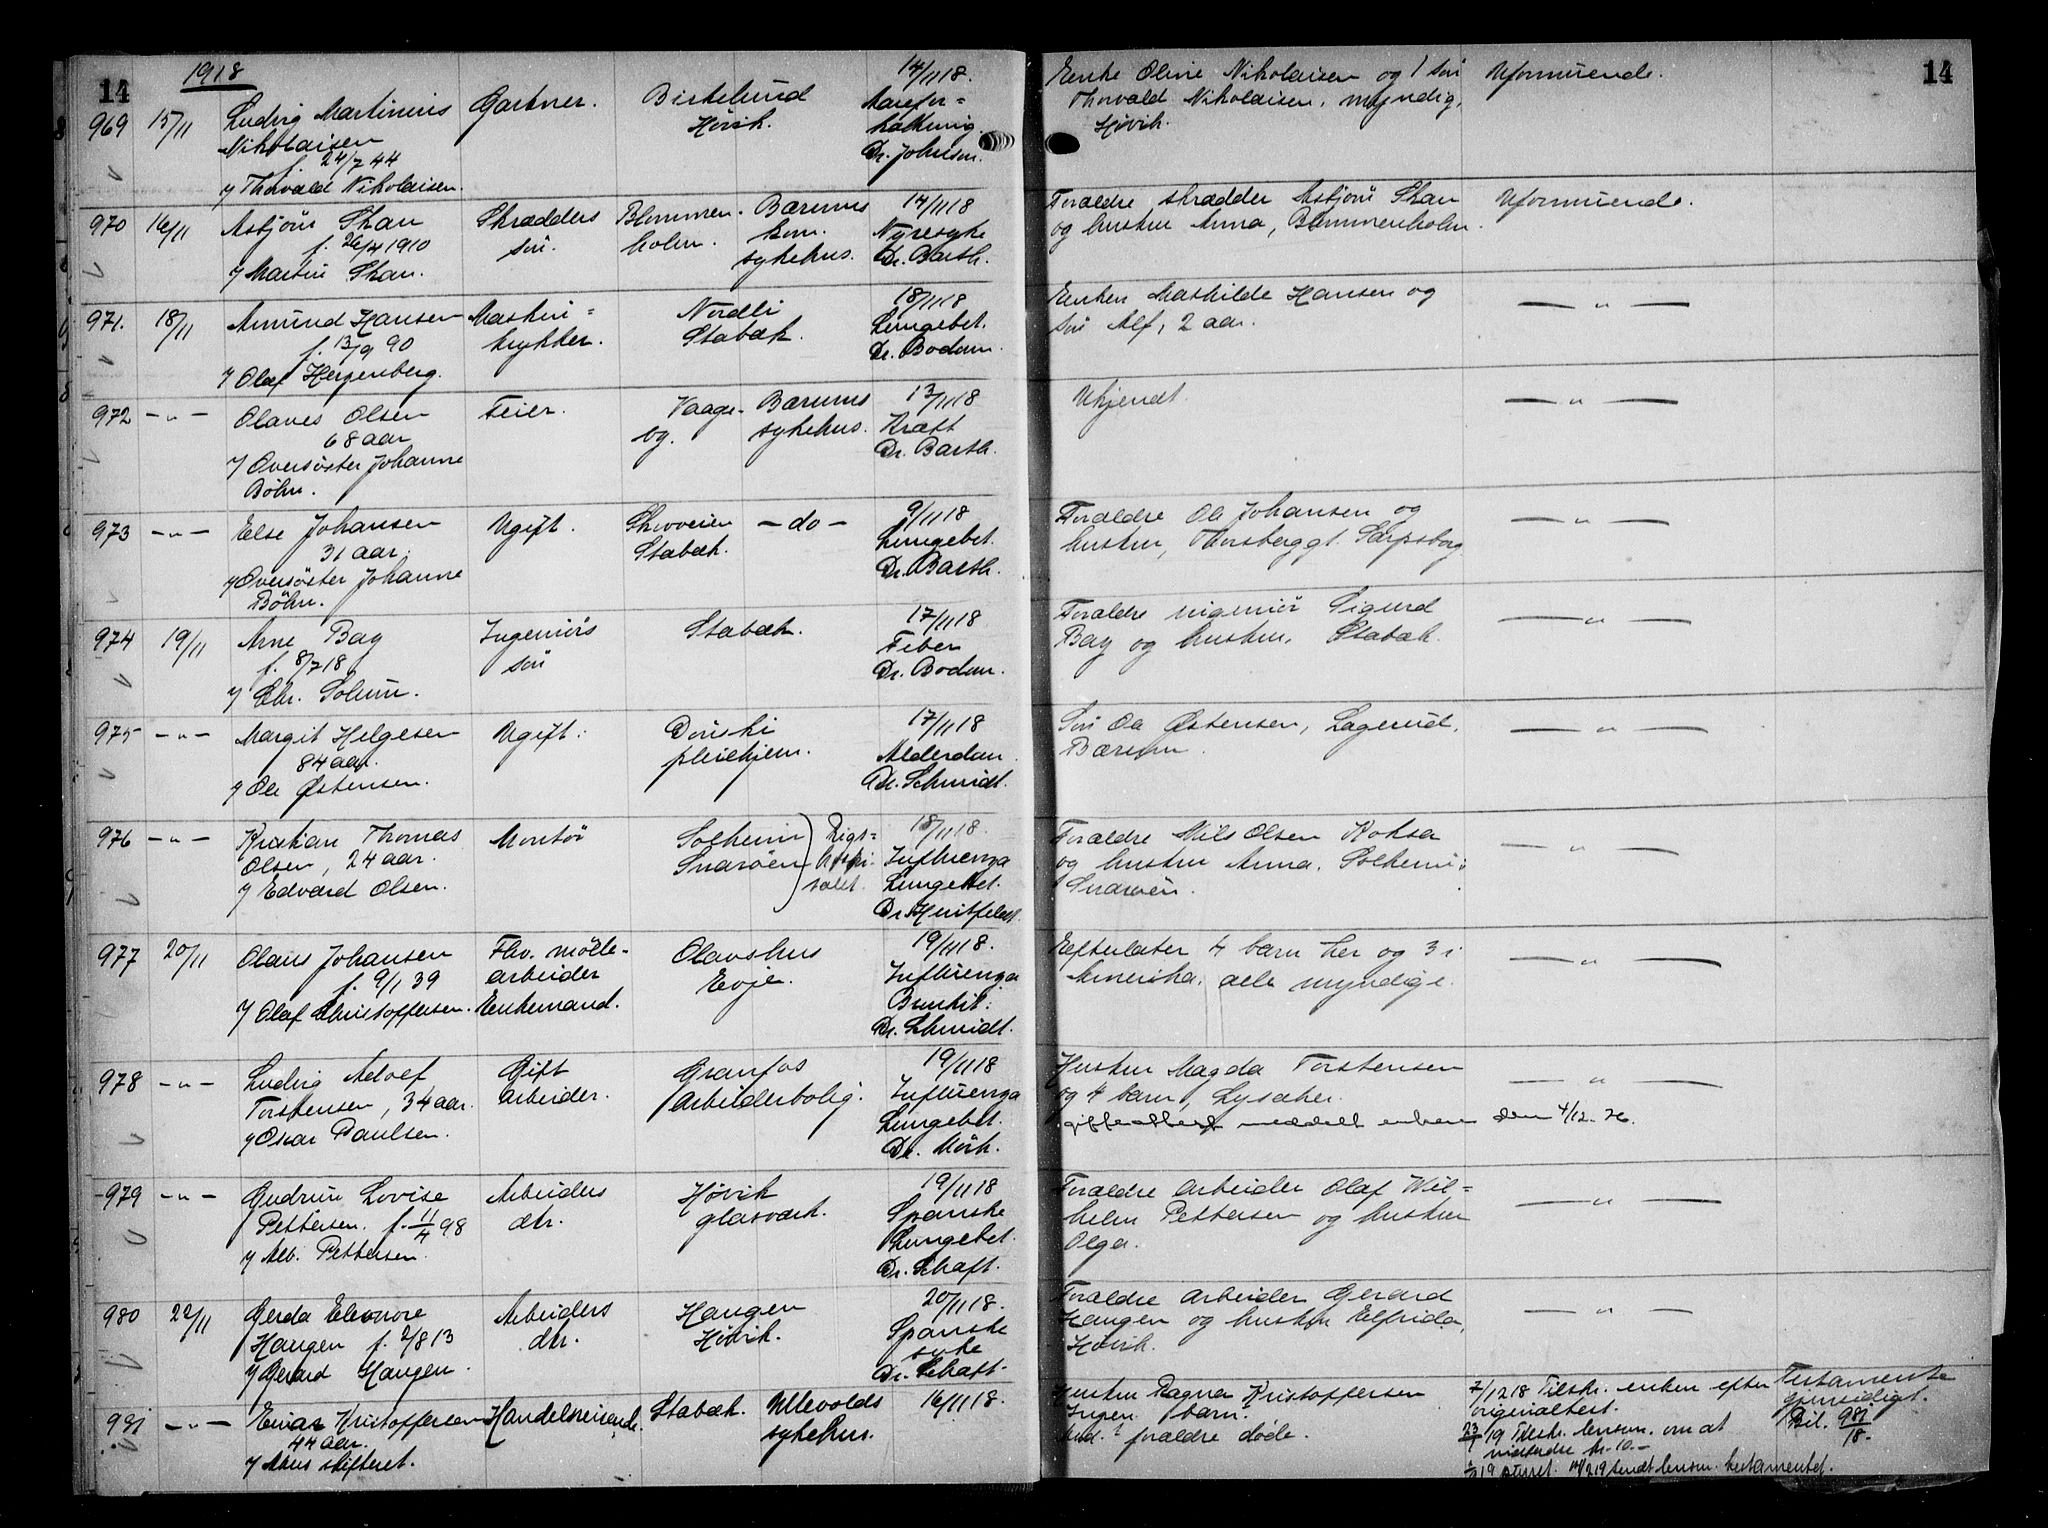 14
1918
14
969
15/11
Ludvig Martinius
Nikolaisen
f. 24/7 44
v/ Thorvald Nikolaisen.
Gartner.
Birkelund
Høvik.
14/11 18.
Marefor=
kalkning.
Dr. Johnsen.
Enke Oline Nikolaisen og 1 søn
Thorvald Nikolaisen, myndig,
Høvik.
Uformuende.
970
16/11
Asbjörn Skau
f. 26/4 1910
v/ Martin Skau.
Skrædders
sön.
Blommen-
holm.
Bærums
kom.
sykehus.
14/11 18
Nyresyke
Dr. Barth.
Forældre skrædder Asbjörn Skau
og hustru Anna, Blommenholm.
Uformuende.
971.
18/11
Amund Hansen
f. 13/9 90
v/ Olaf Hergenberg.
Maskin=
trykker.
Nordli
Stabæk.
18/11 18
Lungebet.
Dr. Bodom.
Enken Mathilde Hansen og
sön Alf, 2 aar.
— " —
972
— " —
Olaves Olsen
68 aar
v/ Oversöster Johanne
Böhn.
Feier.
Vaage-
by.
Bærums
sykehus.
13/11 18
Kræft
Dr. Barth.
Ukjendt.
— " —
973
— " —
Else Johansen
31 aar.
v/ Oversöster Johanne
Böhn.
Ugift.
Skovveien
Stabæk.
— do —
9/11 18
Lungebet.
Dr. Barth.
Forældre Ole Johansen og
hustru, Torsberggt. Sarpsborg
— " —
974
19/11
Arne Bay
f. 8/7 18
v/ Chr. Solum.
Ingeniörs
sön
Stabæk.
17/11 18
Feber
Dr. Bodom.
Forældre ingeniör Sigurd
Bay og hustru, Stabæk.
— " —
975
— " —
Margit Helgesen
84 aar.
v/ Ole Østensen.
Ugift.
Dönski
pleiehjem.
17/11 18
Alderdom.
Dr. Schmidt.
Sön Ole Østensen, Lagerud,
Bærum.
— " —
976
— " —
Kristian Thomas
Olsen, 24 aar.
v/ Edvard Olsen.
Montör
Solheim
Snaröen
Rigs=
hospi-
talet.
18/11 18.
Influenza
Lungebet.
Dr. Huitfeldt.
Forældre Nils Olsen Koksa
og hustru Anna, Solheim,
Snaröen.
— " —
977
20/11
Olaus Johansen
f. 9/1 39
v/ Olaf Christoffersen.
Fhv. mölle-
arbeider
Enkemand.
Olavshus
Evje.
19/11 18.
Influenza
Bronkit.
Dr. Schmidt.
Efterlater 4 barn her og 3 i
Amerika, alle myndige.
— " —
978
— " —
Ludvig Adolf
Torstensen, 34 aar.
v/ Oskar Paulsen.
Gift
arbeider.
Granfos
arbeiderbolig.
19/11 18
Influenza
Lungebet.
Dr. Mörk.
Hustru Magda Torstensen
og 4 barn, Lysaker.
gifteattest meddelt enken den 4/12. 26.
— " —
979
— " —
Gudrun Lovise
Pettersen. f. 11/4 98
v/ Alb. Pettersen.
Arbeiders
dtr.
Høvik
glasværk.
19/11 18
Spanske
Lungebet.
Dr. Schaft.
Forældre arbeider Olaf Wil=
helm Pettersen og hustru
Olga.
— " —
980
22/11
Gerda Eleonore
Haugen f. 2/8 13
v/ Gerard Haugen.
Arbeiders
dtr.
Haugen
Høvik.
20/11 18.
Spanske
syke
Dr. Schaft.
Forældre arbeider Gerard
Haugen og hustru Elfrida,
Høvik.
— " —
981
— " —
Einar Kristoffersen
44 aar.
v/ Mons skifteret.
Handelsreisende.
Stabæk.
Ullevolds
sykehus.
16/11 18.
Hustru Ragna Kristoffersen
Ingen barn.
forældre døde.
7/12 18 Tilskr. enken efter
originaltest.
23/1 19 Tilskr. lensm. om at
indsende kr. 10.—
14/2 19 sendt lensm. testamentet.
Testamente
gjensidigt.
Bil. 981/18.